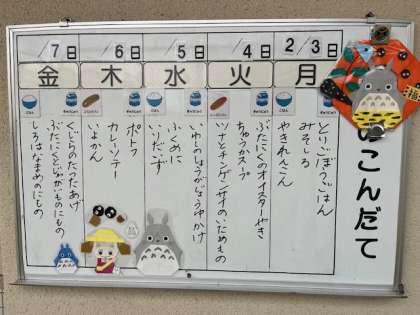 のこんだて
2/3日
月
とりごぼうごはん
みそしる
やきれんこん
/4日
火
ぶたにくのオイスターやき
ちゅうかスープ
ツナとチンゲンサイのいためもの
/5日
水
いわしのしょうがじょうゆかけ
ふくめに
いりだいず
/6日
木
ポトフ
カレーソテー
いよかん
/7日
金
くじらのたつたあげ
ぶたにくとじゃがいものにもの
しろはなまめのにもの